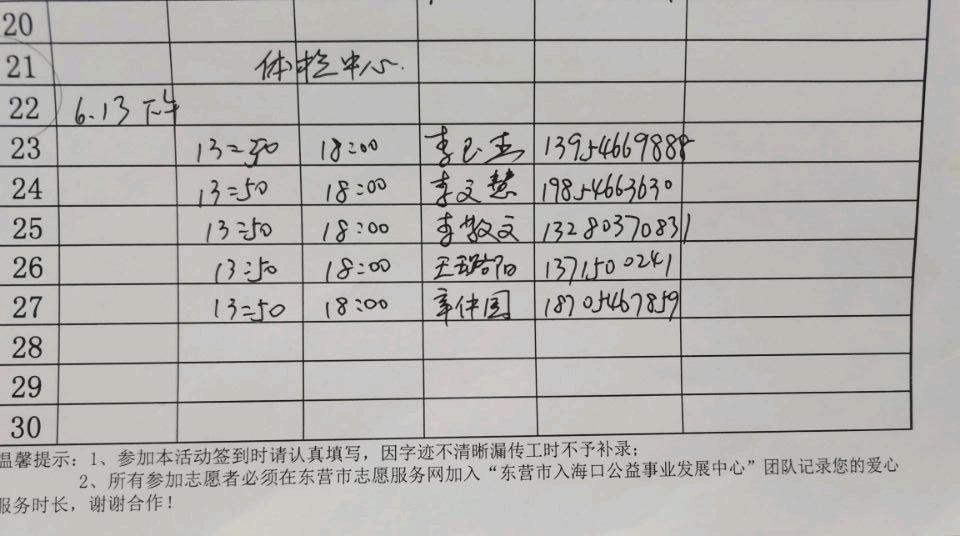 20
21 体检中心.
22 6.13 下午
23 13:50 18:00 李 13954669888
24 13:50 18:00 李文慧 19854663630
25 13:50 18:00 李敬文 13280370831
26 13:50 18:00 王璐阳 1371500241
27 13:50 18:00 18705467859
28
29
30
温馨提示：1、参加本活动签到时请认真填写，因字迹不清晰漏传工时不予补录；
2、所有参加志愿者必须在东营市志愿服务网加入“东营市入海口公益事业发展中心”团队记录您的爱心
服务时长，谢谢合作！